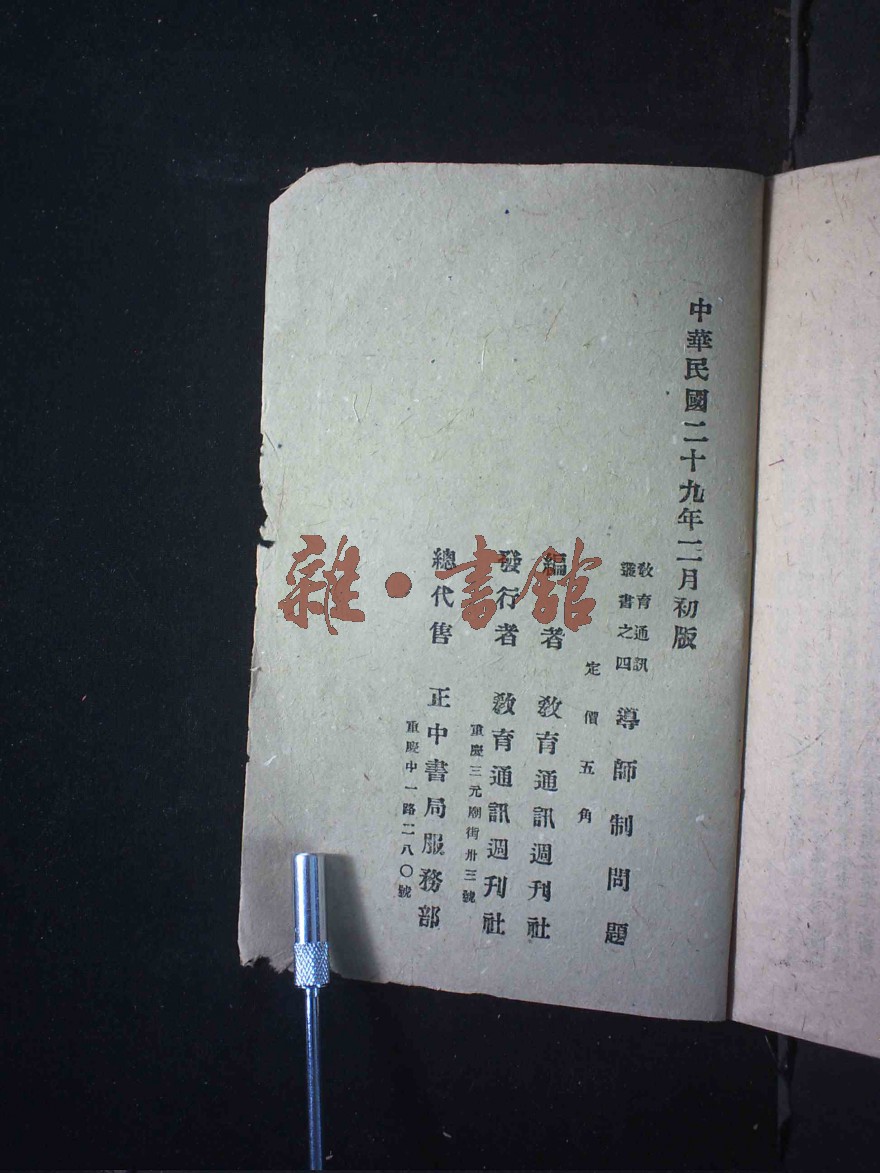 中華民國二十九年二月初版
教育通訊
叢書之四
導師制問題
定價五角
編者 教育通訊週刊社
發行者 教育通訊週刊社
重慶三元廟街卅三號
總代售 正中書局服務部
重慶中一路二八〇號
雜·書館